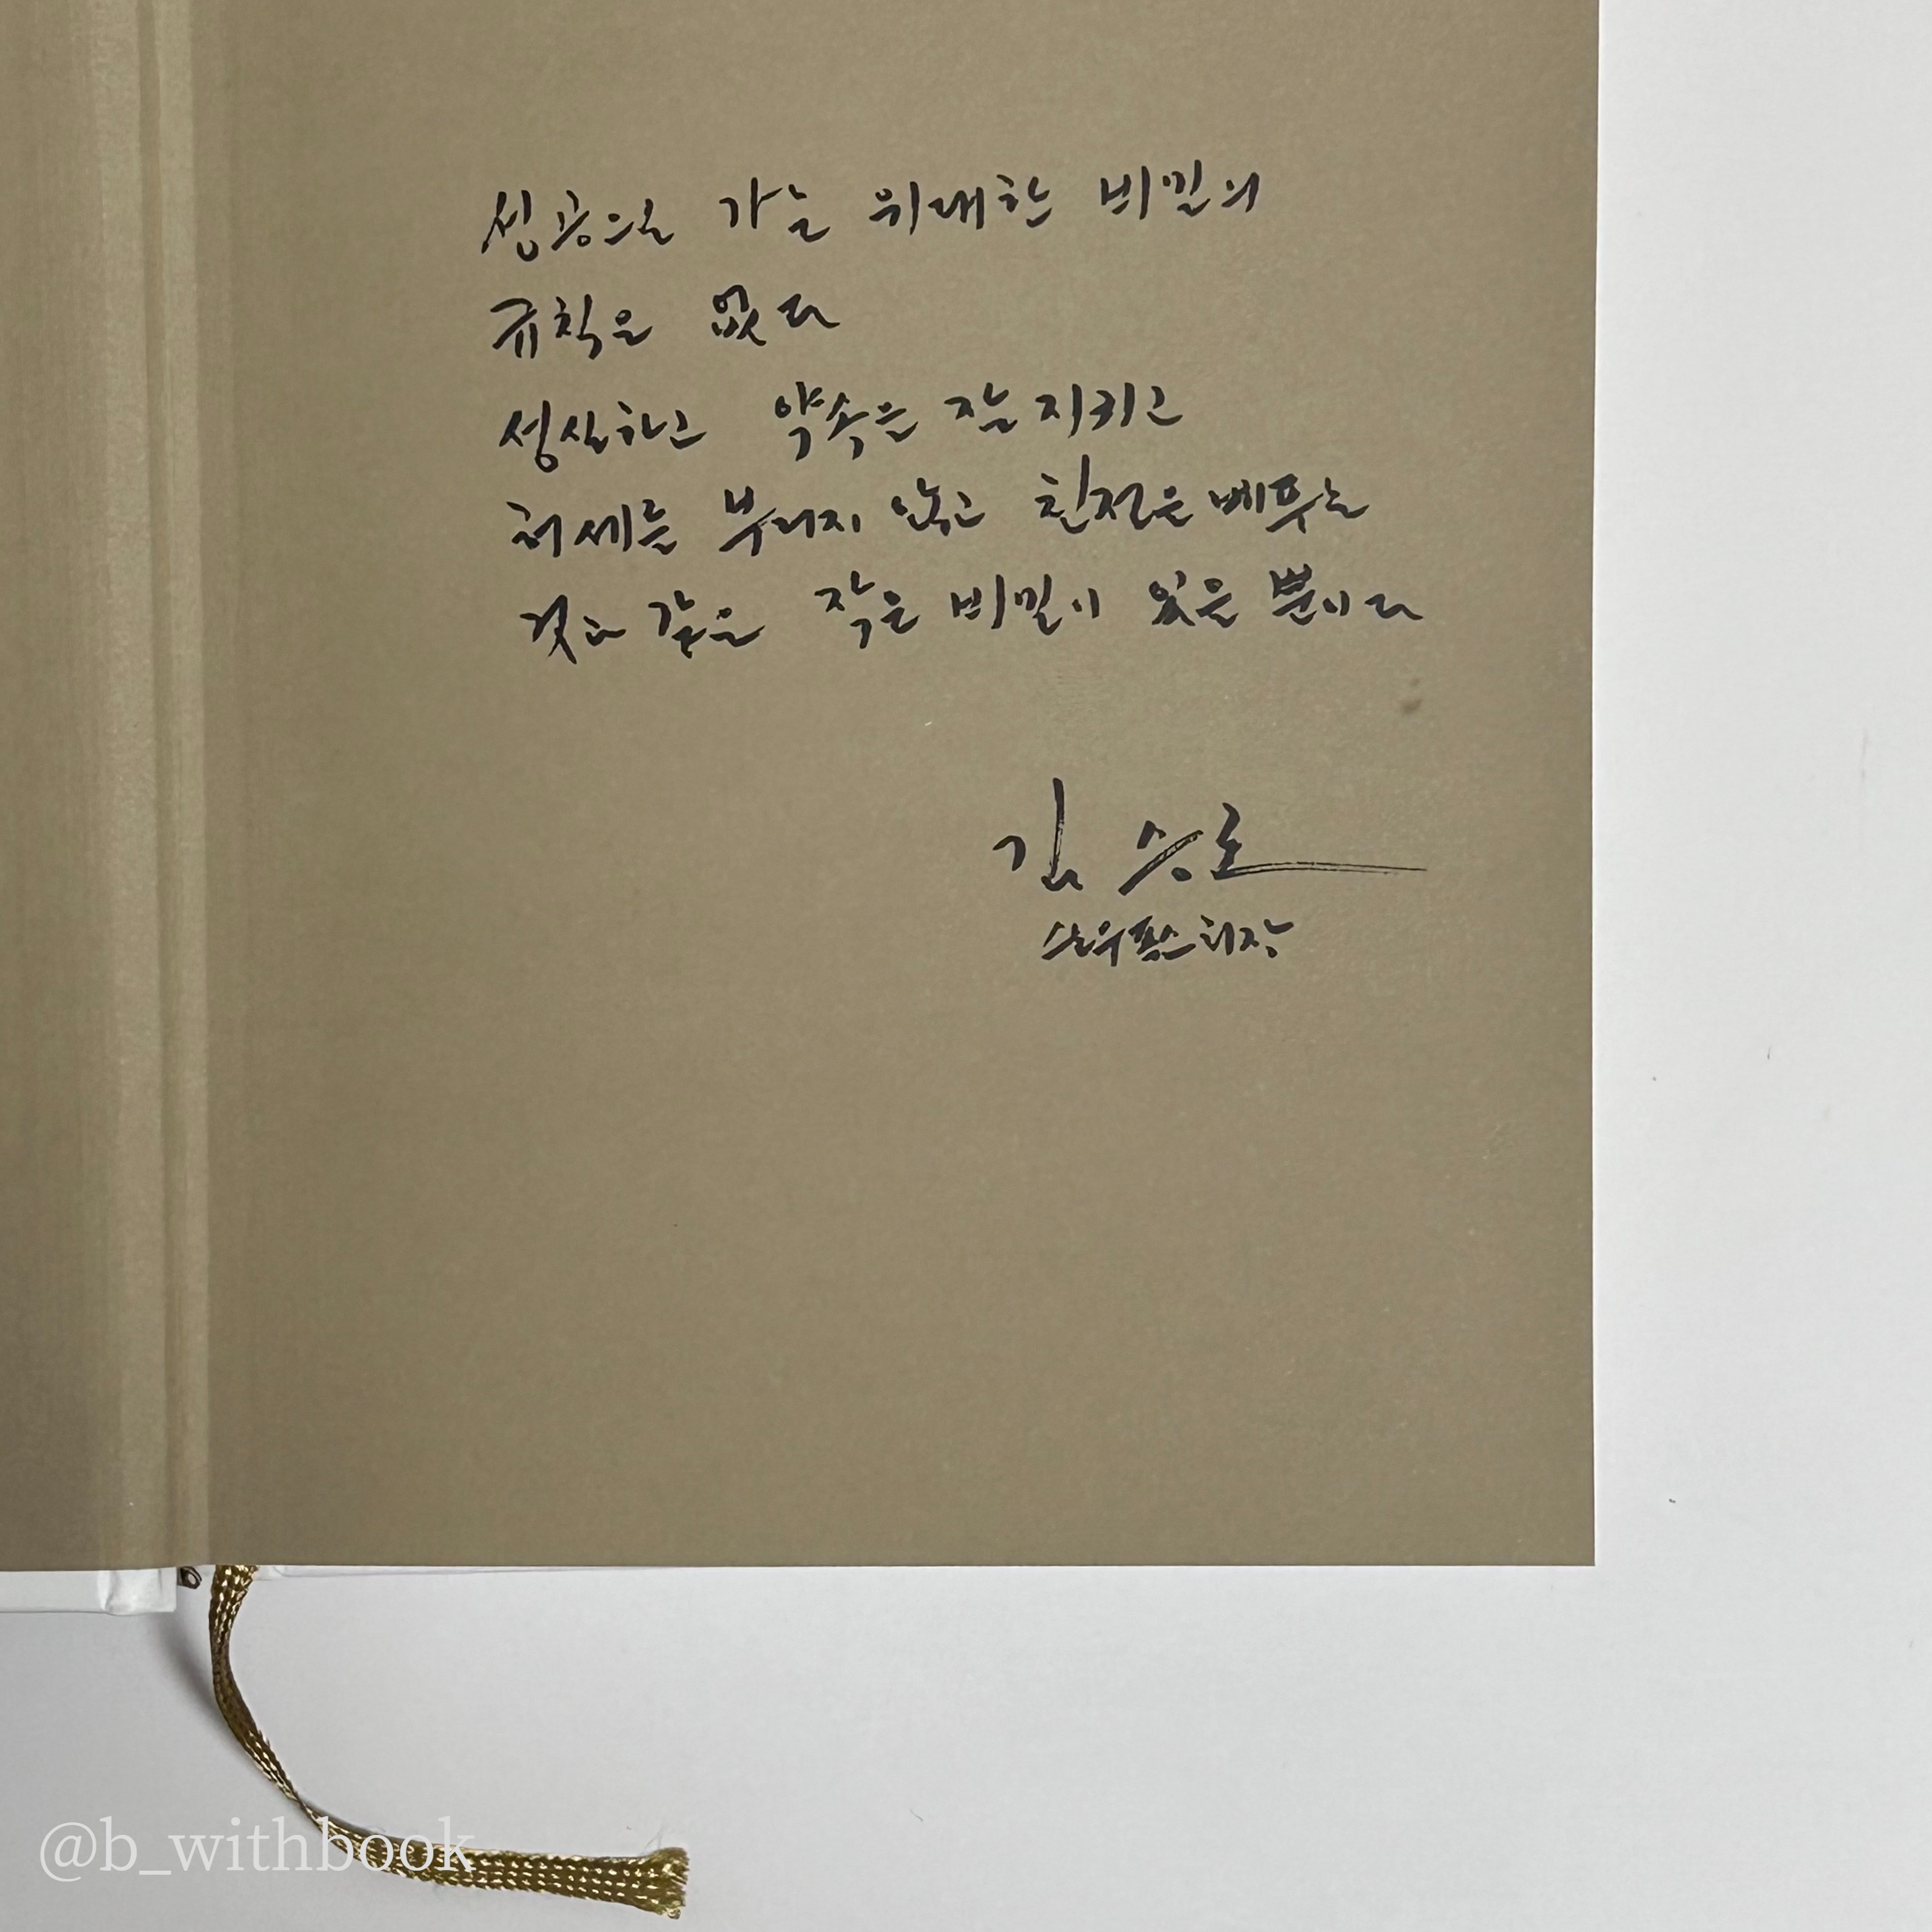 성공으로 가는 위대한 비밀의
규칙은 없다
성실하고 약속을 잘 지키고
허세를 부리지 않고 친절을 베푸는
것과 같은 작은 비밀이 있을 뿐이다
김승호
스노우폭스 회장
@b_withbook